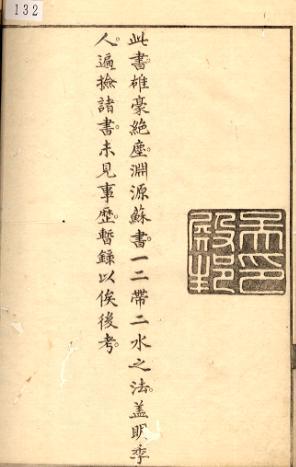 132
此書。雄豪絶塵。淵源蘇書。一二帶二水之法。盖明季
人。遍撿諸書。未見事歷。暫録以俟後考。